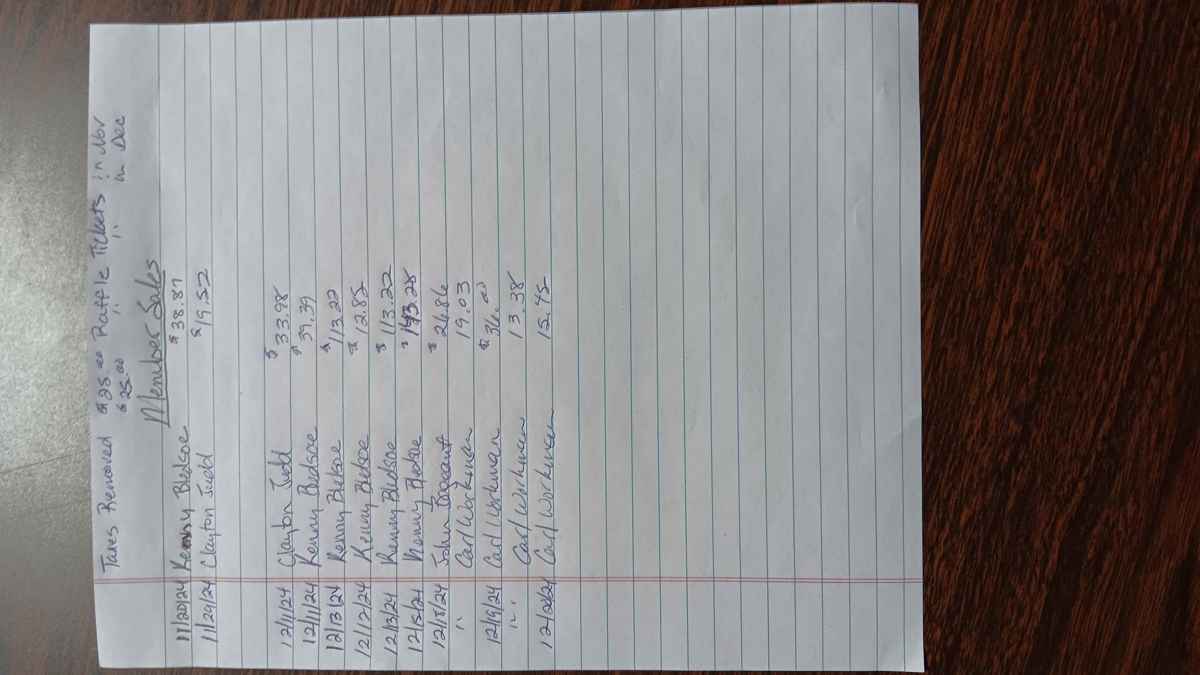 Taxes Removed $25.00 Raffle Tickets in Nov
$25.00 " " in Dec
Member Sales
11/20/24 Kenny Bledsoe $38.87
11/29/24 Clayton Judd $19.52
12/1/24 Clayton Judd $33.98
12/11/24 Kenny Bledsoe $39.39
12/13/24 Kenny Bledsoe $113.22
12/12/24 Kenny Bledsoe $12.82
12/13/24 Kenny Bledsoe $113.22
12/15/24 Kenny Bledsoe $143.28
12/18/24 John $26.86
" Carl Workman 19.03
12/19/24 Carl Workman $36.00
" Carl Workman 13.38
12/20/24 Carl Workman 15.45